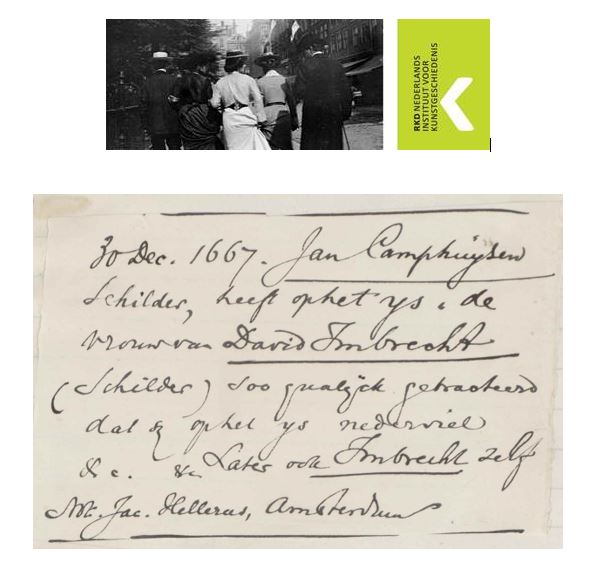 RKD NEDERLANDS
INSTITUUT VOOR
KUNSTGESCHIEDENIS
30 Dec. 1667. Jan Camphuijsen
Schilder, heeft op het ys, de
vrouw van David Imbrecht
(Schilder) soo qualijck getracteerd
dat zij op het ys nederviel
&c. &c Later ook Imbrecht zelf
Not. Jac. Hellerus, Amsterdam